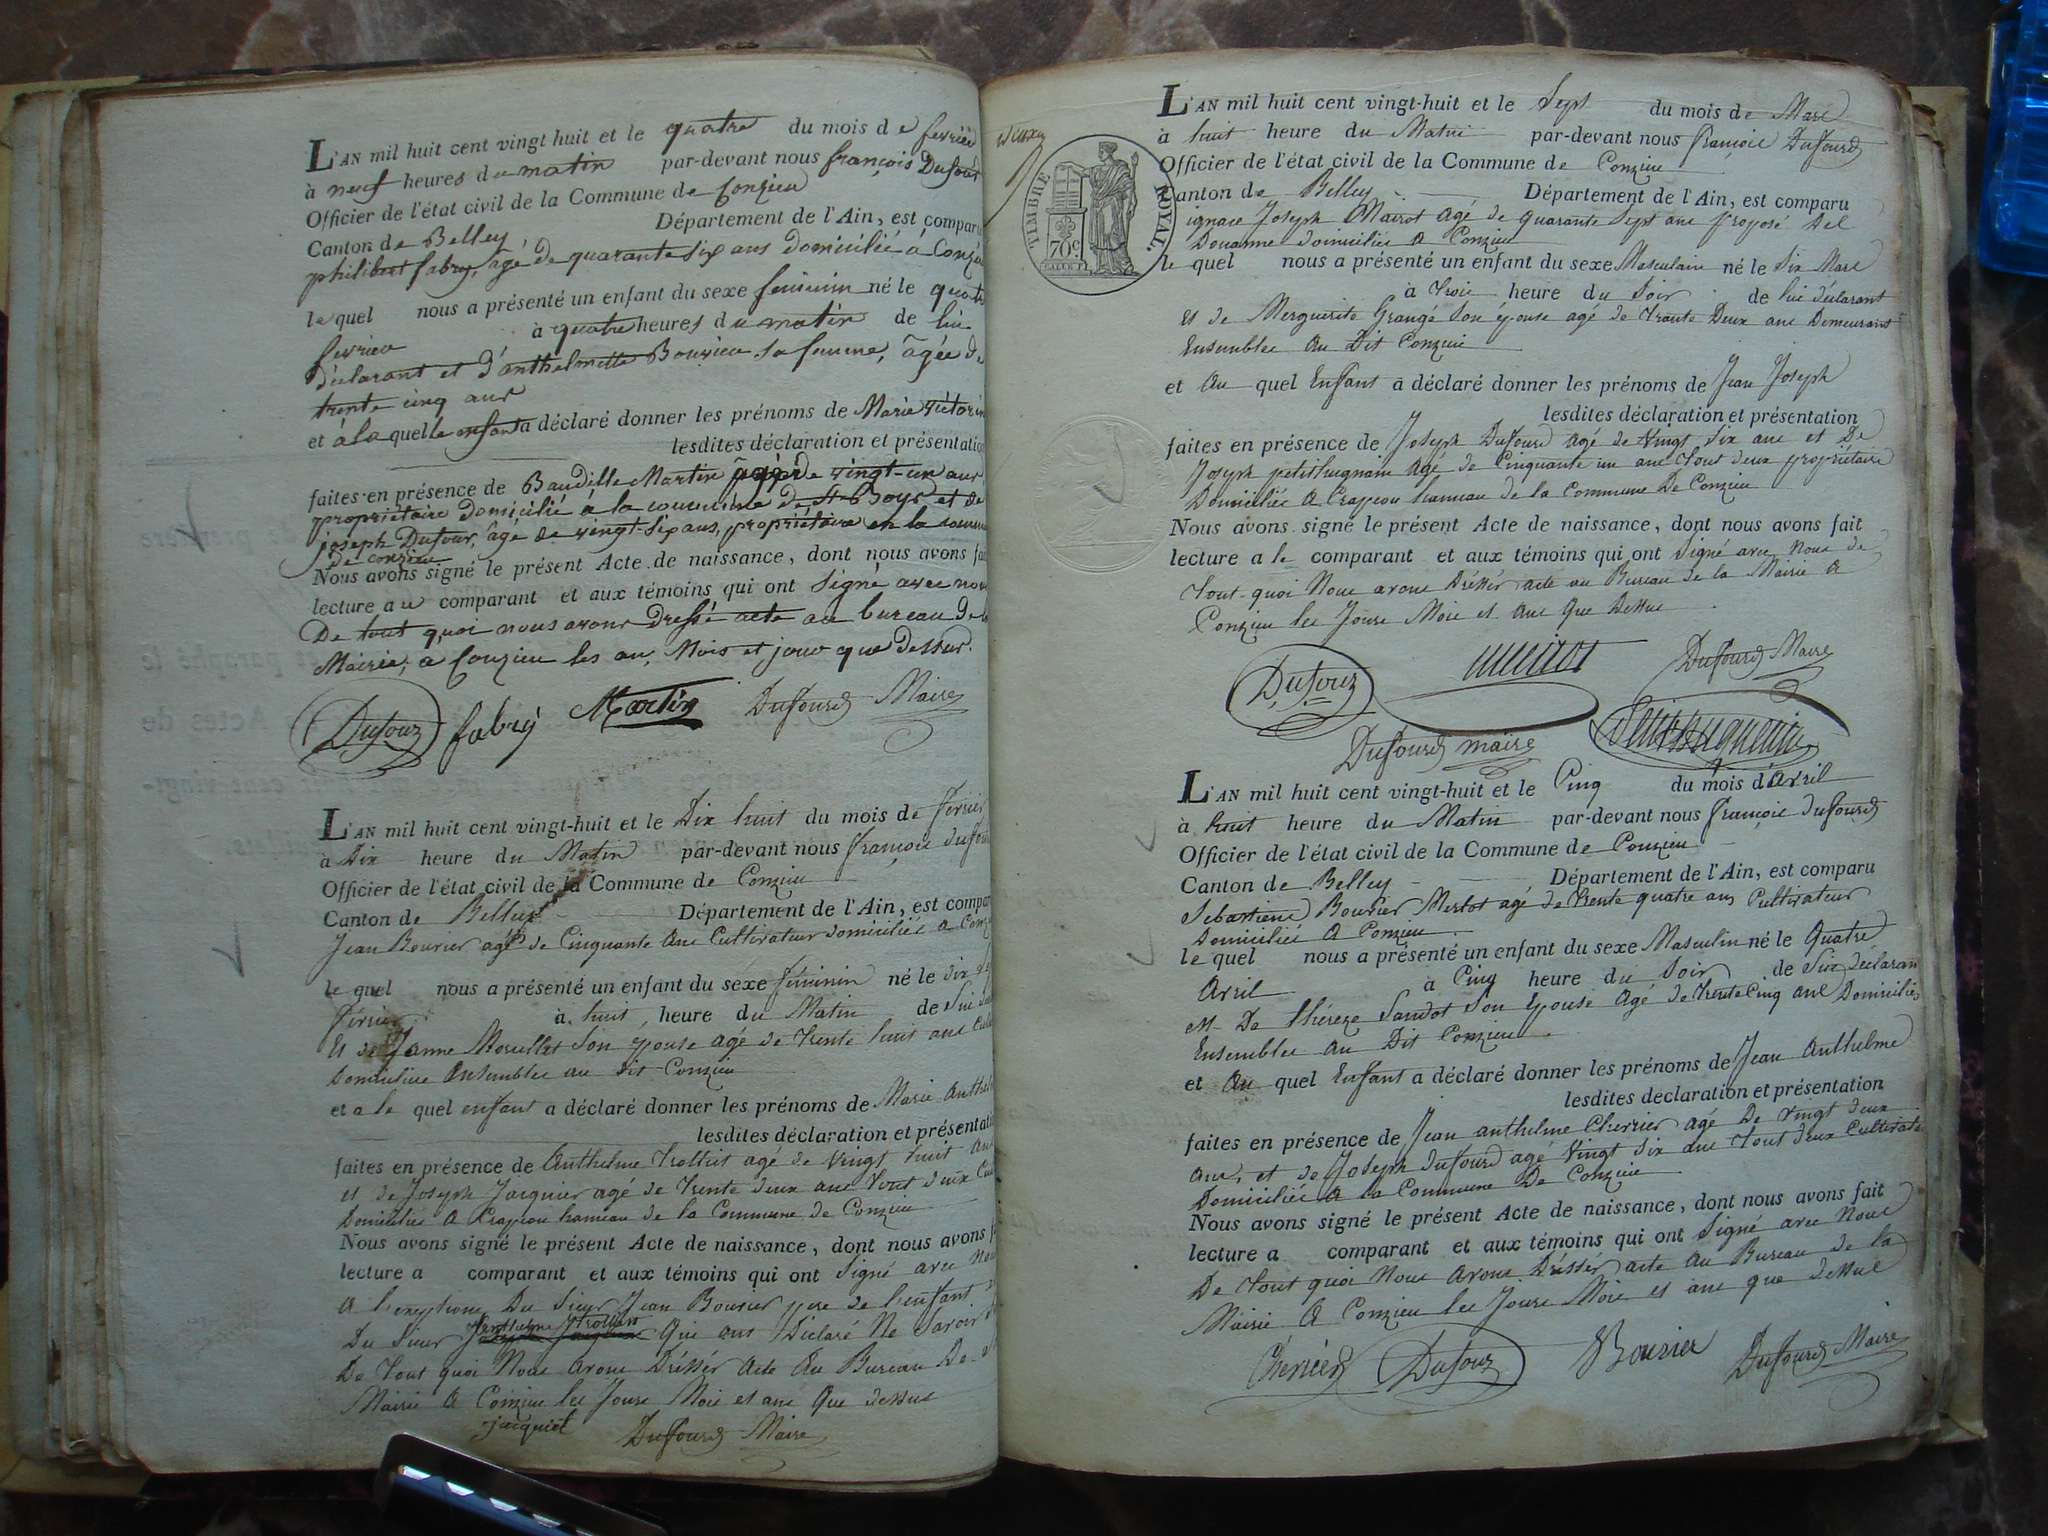 L'AN mil huit cent vingt huit et le quatre du mois de fevrier
à neuf heures du matin par-devant nous françois Dufour
Officier de l'état civil de la Commune de Conzieu
Canton de Belley Département de l'Ain, est comparu
philibert fabry, âgé de quarante six ans domicilié à Conzieu
le quel nous a présenté un enfant du sexe feminin né le quatre
fevrier à quatre heures du matin de lui
déclarant et d'anthelmette Bouvier sa femme, âgée de
trente cinq ans
et à la quelle enfant a déclaré donner les prénoms de Marie victorine
lesdites déclaration et présentation
faites en présence de Baudille Martin âgé de vingt-un ans
propriétaire domicilié à la commune de St Boys et de
joseph Dufour, âgé de vingt-six ans, propriétaire en la commune
de conzieu
Nous avons signé le présent Acte de naissance, dont nous avons fait
lecture au comparant et aux témoins qui ont signé avec nous
De tout quoi nous avons dressé acte au bureau de la
Mairie, à Conzieu les an, Mois et jour que dessus.
Dufour fabry Martin Dufourd Maire
L'AN mil huit cent vingt-huit et le Dix huit du mois de Février
à Dix heure du Matin par-devant nous françois Dufourd
Officier de l'état civil de la Commune de Conzieu
Canton de Belley Département de l'Ain, est comparu
Jean Bouvier agé de Cinquante ans Cultivateur domicilié a Conzieu
le quel nous a présenté un enfant du sexe féminin né le dix
Février à huit heure du Matin de lui
Et de Janne Morellet Son épouse agé de trente huit ans
Domiciliée Ensembles au dit Conzieu
et a le quel enfant a déclaré donner les prénoms de Marie Anthel
lesdites déclaration et présentation
faites en présence de Anthelme Trolliet agé de vingt huit ans
et de Joseph Jacquier agé de trente deux ans tout deux
Domiciliés a Crapeou hameau de la Commune de Conzieu
Nous avons signé le présent Acte de naissance, dont nous avons
lecture a comparant et aux témoins qui ont Signé avec Nous
A l'exeptione Du Sieur Jean Bouvier pere de l'enfant
Du Sieur anthelme trolliet Que ont Déclaré Ne Savoir
De tout quoi Nous avons Dréssér Acte Au Bureau De
Mairie a Conzieu les Jours Mois et ans Que dessus
jacquiel Dufourd Maire
TIMBRE ROYAL.
70c.
L'AN mil huit cent vingt-huit et le Sept du mois de Mars
à huit heure du Matin par-devant nous françois Dufourd
Officier de l'état civil de la Commune de Conzieu
Canton de Belley Département de l'Ain, est comparu
ignace Joseph Mairot agé de quarante Sept ans proposé del
Douanne domiciliés a Conzieu
le quel nous a présenté un enfant du sexe Masculain né le Six Mars
à trois heure du Soir de lui déclarant
Et de Merguerite Grangé Son épouse agé de trante Deux ans Demeurant
Ensembles Au Dit Conzieu
et Au quel Enfant a déclaré donner les prénoms de Jean Joseph
lesdites déclaration et présentation
faites en présence de Joseph Dufourd agé de vingt Six ans et De
Joseph petithuguain agé de Cinquante un ans tout deux propriétaire
Domiciliés A Crapeou hameau de la Commune De Conzieu
Nous avons signé le présent Acte de naissance, dont nous avons fait
lecture a le comparant et aux témoins qui ont Signé avec Nous de
tout quoi Nous avons Dréssér acte au Bureau de la Mairie A
Conzieu les Jours Mois et Ans Que Dessus
Dufour Mairot Dufourd Maire
Dufourd maire Petithuguenin
L'AN mil huit cent vingt-huit et le Cinq du mois d'Avril
à huit heure du Matin par-devant nous françois dufourd
Officier de l'état civil de la Commune de Conzieu
Canton de Belley Département de l'Ain, est comparu
Sebastiene Bouvier Merlot agé de trente quatre ans Cultivateur
Domiciliés A Conzieu
le quel nous a présenté un enfant du sexe Masculin né le Quatre
Avril à Cinq heure du Soir de lui déclaran
et De thérèze Sandot Son Epouse agé de trente Cinq ans Domiciliés
Ensembles au Dit Conzieu
et Au quel Enfant a déclaré donner les prénoms de Jean Anthelme
lesdites declaration et présentation
faites en présence de Jean anthelme Cherrier agé De vingt deux
ans, et de Joseph dufourd agé vingt Six ans tout deux Cultivate
Domiciliés A la Commune De Conzieu
Nous avons signé le présent Acte de naissance, dont nous avons fait
lecture a comparant et aux témoins qui ont Signé avec Nous
De tout quoi Nous avons Dréssér acte Au Bureau de la
Mairie A Conzieu les Jours Mois et ans que dessus
Cherrier Dufour Bouvier Dufourd Maire